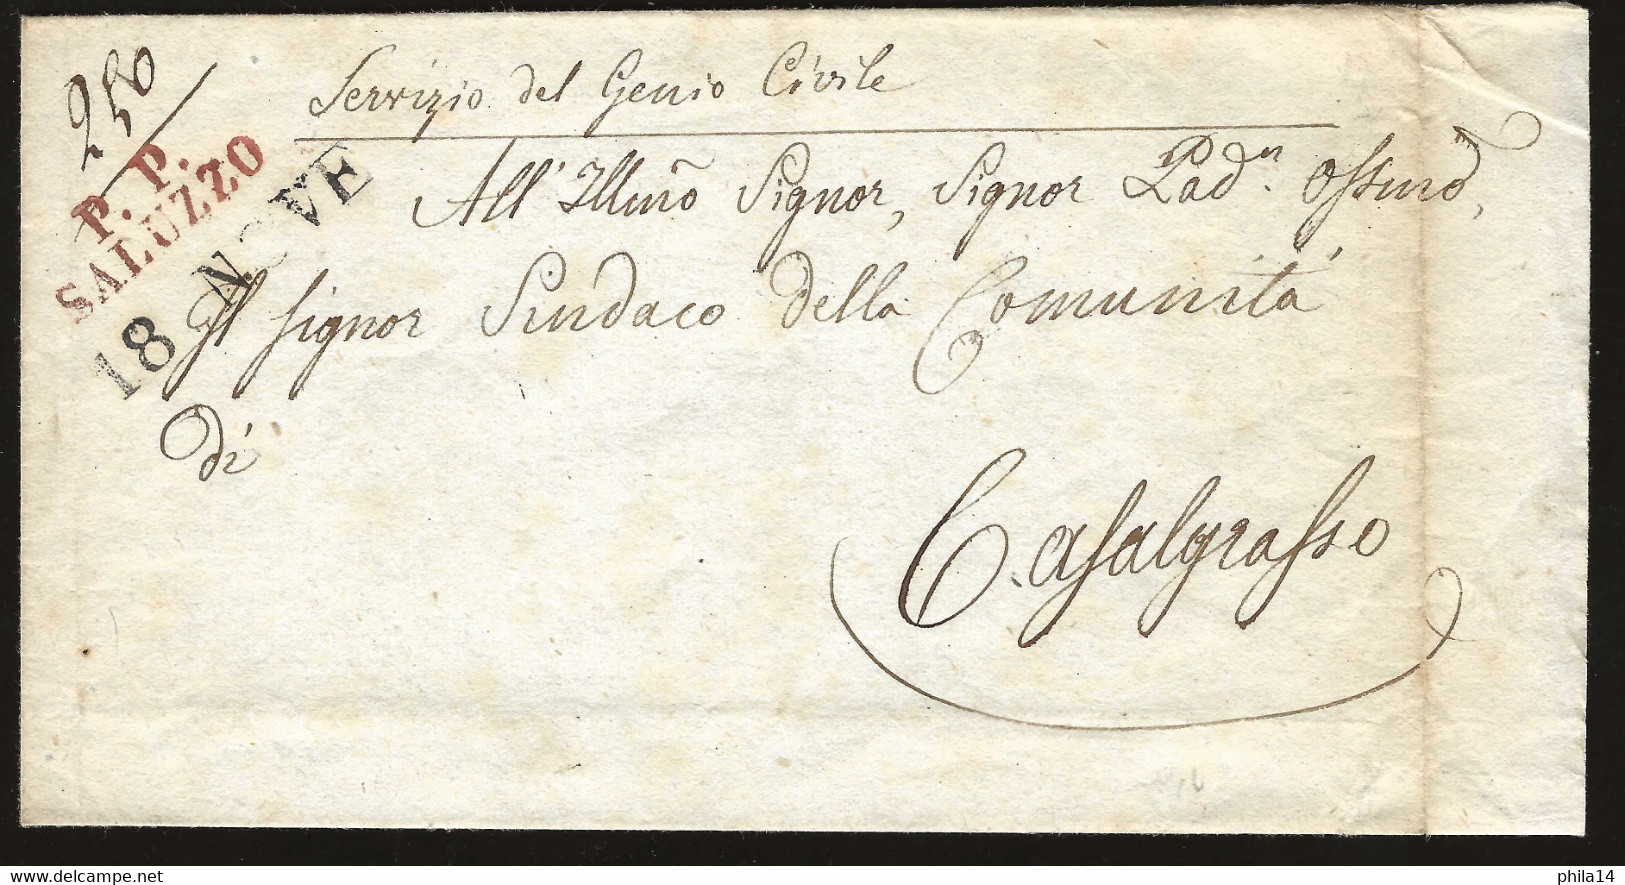 250
Servizio del Genio Civile
P. P.
SALUZZO
18 NOVE
All' Illmo Signor, Signor Pad.n Ossmo,
Il Signor Sindaco della Comunità
di
Casalgrasso
delcampe.net
phila14